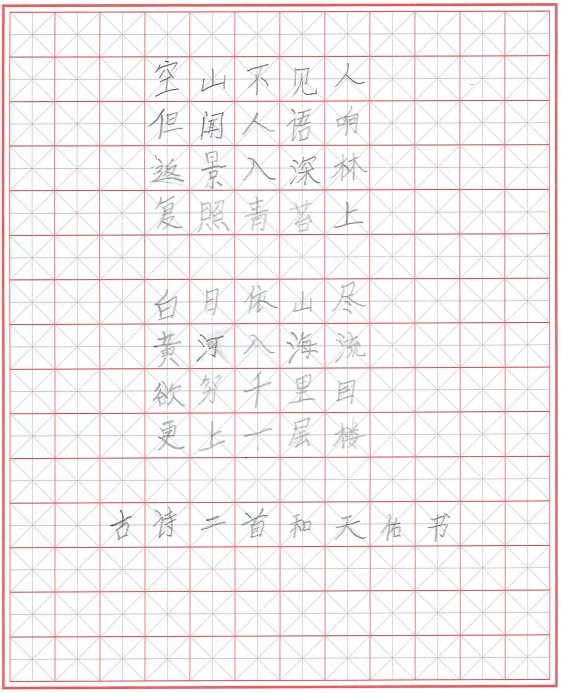 空山不见人
但闻人语响
返景入深林
复照青苔上
白日依山尽
黄河入海流
欲穷千里目
更上一层楼
古诗二首和天佑书